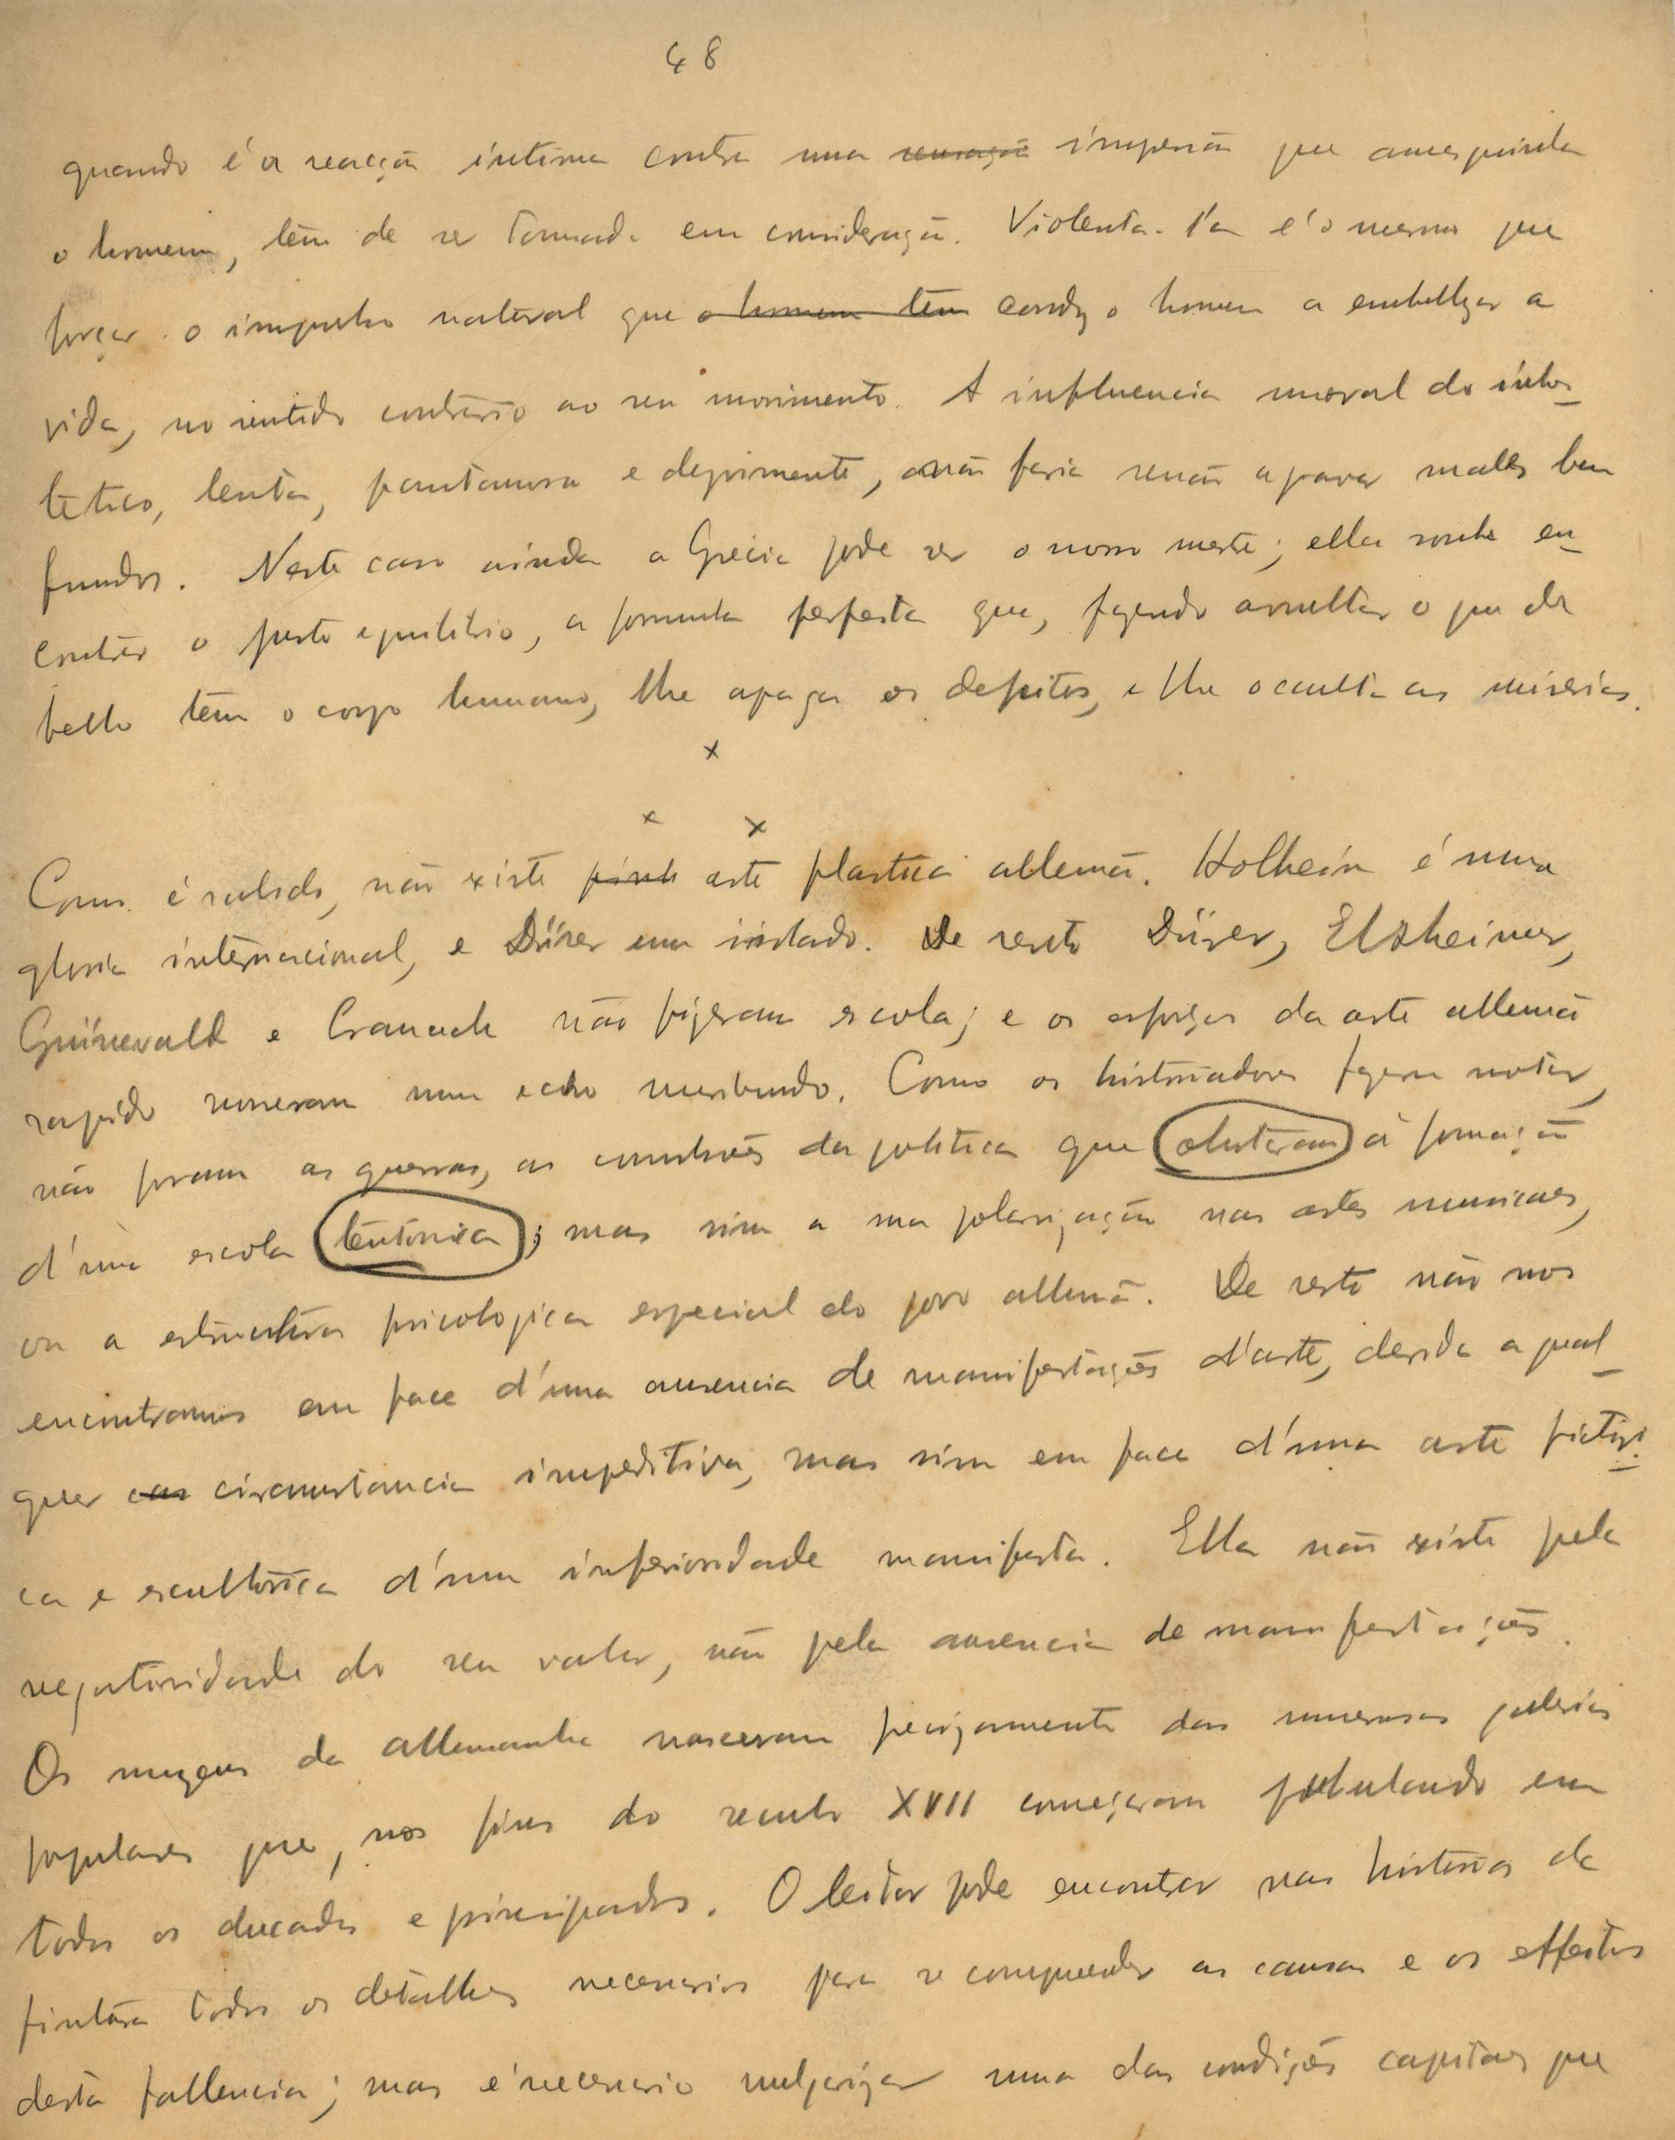 48
quando é a reacção intima contra uma sensação impressão que
o homem, têm de ser tomada em consideração. Violenta-la é o mesmo que
forçar o impulso natural que o homem tem conduz o homem a embellezar a
vida, no sentido contrario ao seu movimento. A influencia moral do inhos-
, lenta, pantanosa e deprimente, não faria senão agravar males bem
fundos. Neste caso ainda a Grécia pode ser o nosso mestre; ella soube en-
contrar o justo equilibrio, a formula perfeita que, fazendo avultar o que de
bello têm o corpo humano, lhe apaga os defeitos, e lhe occulta as miserias.
x
x x
Como é sabido, não existe pint arte plastica allemã. Holbein é uma
gloria internacional, e Dürer um isolado. De resto Dürer, Elzheimer,
Grünevald e Cranach não fizeram escola; e os esforços da arte allemã
rapido morreram num echo moribundo. Como os historiadores fazem notar,
não foram as guerras, as convulsões da politica que obstaram á formação
d'uma escola teutonica; mas sim a sua polarização nas artes musicaes,
ou a estructura psicologica especial do povo allemã. De resto não nos
encontramos em face d'uma ausencia de manifestações d'arte, devida a qual-
quer cas circumstancia impeditiva, mas sim em face d'uma arte pictori-
ca e escultorica d'uma inferioridade manifesta. Ella não existe pela
negatividade do seu valor, não pela ausencia de manifestações.
Os muzeus da Allemanha nasceram das numerosas galerias
populares que, nos fins do seculo XVII começaram pululando em
todos os ducados e principados. O leitor pode encontrar nas historias da
pintura todos os detalhes necessarios para se comprehender as causas e os effeitos
desta fallencia; mas é necessario vulgarizar uma das condições capitaes que